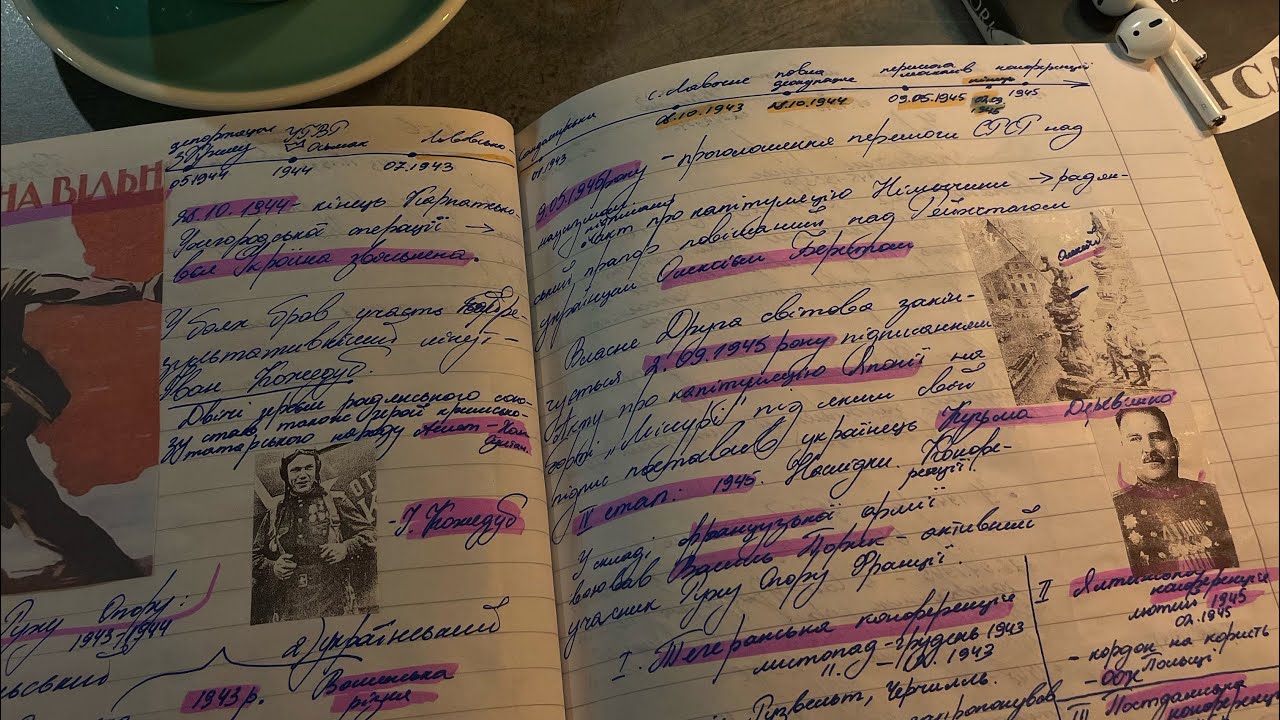 НА ВІЛЬН
депортація УГВР
з Криму
05.1944 1944 07.1943
28.10.1944 - кінець Карпатсько-
Ужгородської операції →
вся Україна звільнена.
У боях брав участь
Іван Кожедуб.
Двічі героєм радянського сою-
зу став також герой кримсько-
татарського народу Амет-Хан
Султан.
- І. Кожедуб
Руху Опору:
1943-1944
2) український
1943 р.
Волинська
різня
01.1943
10.1943 28.10.1944 09.05.1945 02.09.1945 1945
повна перемога кінець конференції
9.05.1945 року - проголошення перемоги СРСР над
нацизмом підписано
акт про капітуляцію Німеччини → радян-
ський прапор повішаний над Рейхстагом
українцем Олексієм Берестом
Власне Друга світова закін-
чується 2.09.1945 року підписанням
акту про капітуляцію Японії на
борті „Міссурі" під яким свій
підпис поставив українець Кузьма Деревянко
IV етап: 1945. Наслідки. Конфе-
ренції.
У складі Французької армії
воював Василь Порик - активний
учасник Руху Опору Франції.
I. Тегеранська конференція
листопад-грудень 1943
11. - 12. 1943
Рузвельт, Черчилль.
запропонував
II Ялтинська
конференція
лютий 1945
02.1945
- кордон на користь
Польщі
- ООН
III Постдамська
конференція